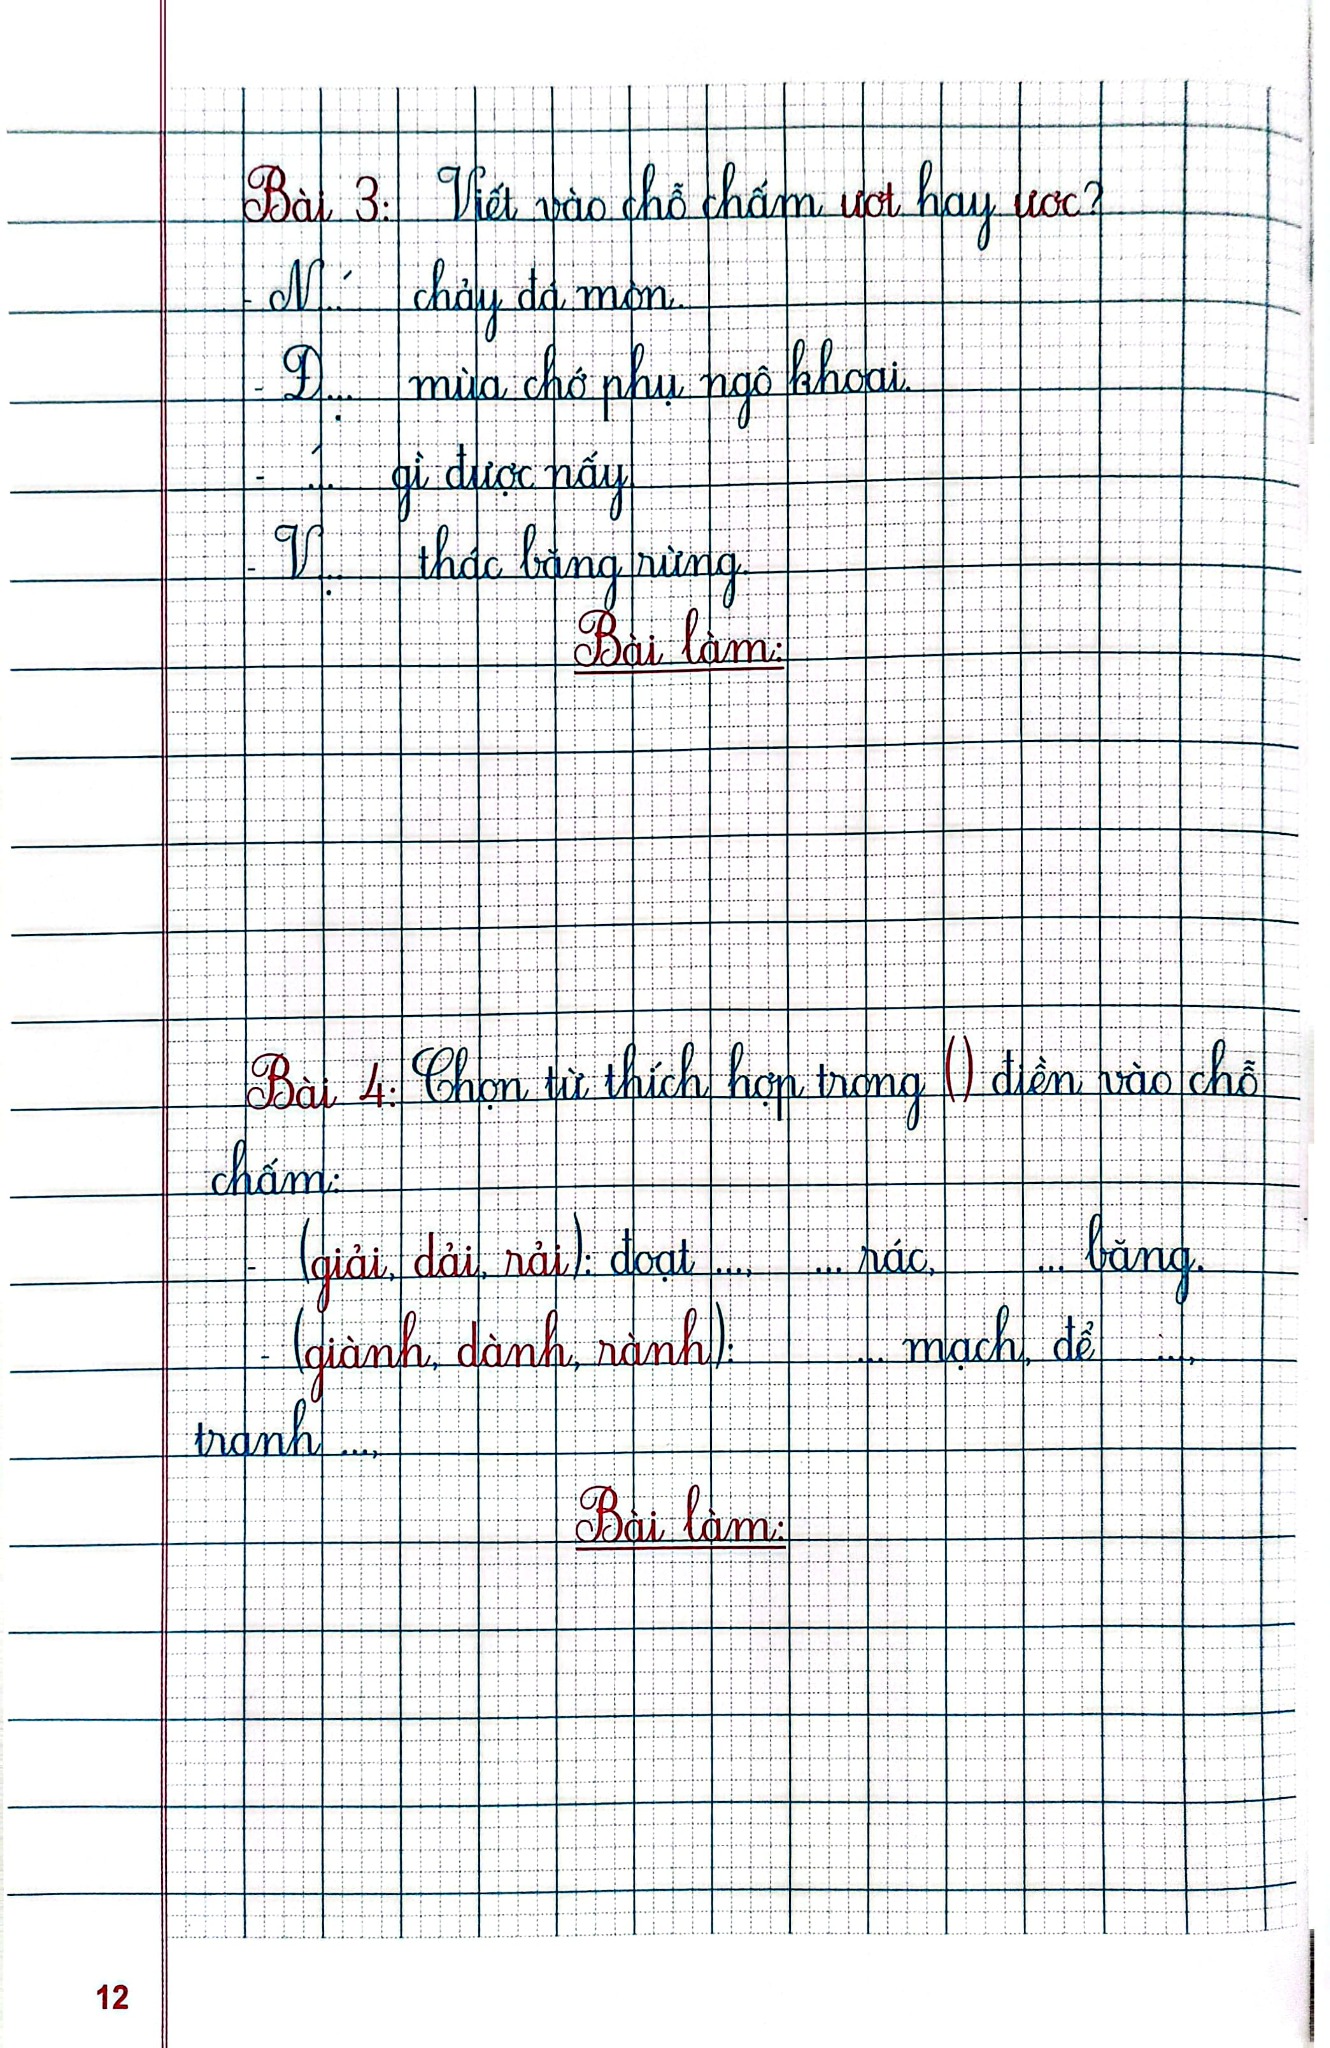 Bài 3: Viết vào chỗ chấm ươt hay ươc?
- N...́ chảy đá mòn.
- Đ...̣ mùa chớ phụ ngô khoai.
- ...́ gì được nấy
- V...̣ thác băng rừng.
Bài làm:
Bài 4: Chọn từ thích hợp trong () điền vào chỗ
chấm:
- (giải, dải, rải): đoạt ..., ... rác, ... băng.
- (giành, dành, rành): ... mạch, để ...,
tranh ...,
Bài làm:
12